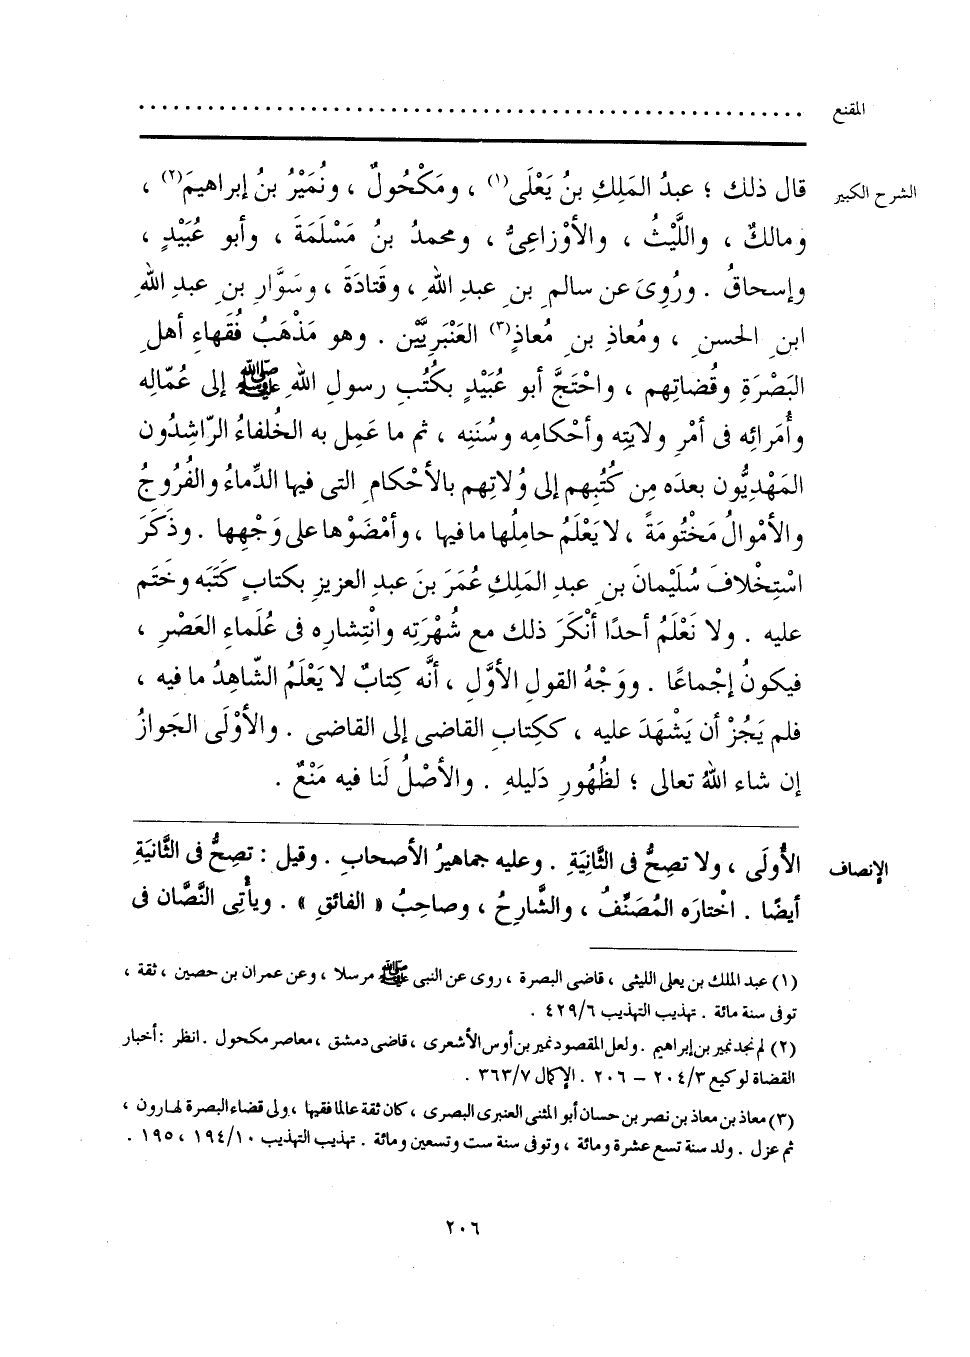 المقنع
الشرح الكبير قال ذلك ؛ عبدُ المَلِكِ بنُ يَعْلَى(١) ، ومَكْحُولٌ ، ونُمَيْرُ بنُ إبراهيمَ(٢) ،
ومالكٌ ، واللَّيْثُ ، والأوْزاعِىُّ ، ومحمدُ بنُ مَسْلَمَةَ ، وأبو عُبَيْدٍ ،
وإسحاقُ . ورُوِىَ عن سالمِ بنِ عبدِ اللهِ ، وقَتادَةَ ، وسَوَّارِ بنِ عبدِ اللهِ
ابنِ الحسنِ ، ومُعاذِ بنِ مُعاذٍ(٣) العَنْبَرِيَّيْن . وهو مَذْهَبُ فُقَهاءِ أهلِ
البَصْرَةِ وقُضاتِهم ، واحْتَجَّ أبو عُبَيْدٍ بكُتُبِ رسولِ اللهِ ﷺ إلى عُمّالِه
وأُمَرائِه فى أمْرِ وِلايَتِه وأحْكامِه وسُنَنِه ، ثم ما عَمِل به الخُلفاءُ الرّاشِدُون
المَهْدِيُّون بعدَه مِن كُتُبِهم إلى وُلاتِهم بالأحْكامِ التى فيها الدِّماءُ والفُرُوجُ
والأمْوالُ مَخْتُومَةً ، لا يَعْلَمُ حامِلُها ما فيها ، وأمْضَوْها على وَجْهِها . وذَكَرَ
اسْتِخْلافَ سُلَيْمانَ بنِ عبدِ المَلِكِ عُمَرَ بنَ عبدِ العزيزِ بكتابٍ كَتَبَه وخَتَم
عليه . ولا نَعْلَمُ أحدًا أنْكَرَ ذلك مع شُهْرَتِه وانْتِشارِه فى عُلَماءِ العَصْرِ ،
فيكونُ إجْماعًا . ووَجْهُ القولِ الأوَّلِ ، أنَّه كِتابٌ لا يَعْلَمُ الشّاهِدُ ما فيه ،
فلم يَجُزْ أن يَشْهَدَ عليه ، ككِتابِ القاضى إلى القاضى . والأوْلَى الجَوازُ
إن شاء اللهُ تعالى ؛ لظُهُورِ دَليلهِ . والأصْلُ لَنا فيه مَنْعٌ .
الإنصاف الأُولَى ، ولا تصِحُّ فى الثَّانيَةِ . وعليه جماهيرُ الأصحابِ . وقيل : تصِحُّ فى الثَّانيَةِ
أيضًا . اختارَه المُصَنِّفُ ، والشَّارِحُ ، وصاحِبُ « الفائقِ » . ويأْتِى النَّصَّان فى
(١) عبد الملك بن يعلى الليثى ، قاضى البصرة ، روى عن النبى ﷺ مرسلا ، وعن عمران بن حصين ، ثقة ،
توفى سنة مائة . تهذيب التهذيب ٤٢٩/٦ .
(٢) لم نجد نمير بن إبراهيم . ولعل المقصود نمير بن أوس الأشعرى ، قاضى دمشق ، معاصر مكحول . انظر : أخبار
القضاة لوكيع ٢٠٤/٣ – ٢٠٦ . الإكمال ٣٦٣/٧ .
(٣) معاذ بن معاذ بن نصر بن حسان أبو المثنى العنبرى البصرى ، كان ثقة عالما فقيها ، ولى قضاء البصرة لهارون ،
ثم عزل . ولد سنة تسع عشرة ومائة ، وتوفى سنة ست وتسعين ومائة . تهذيب التهذيب ١٩٤/١٠ ، ١٩٥ .
٢٠٦